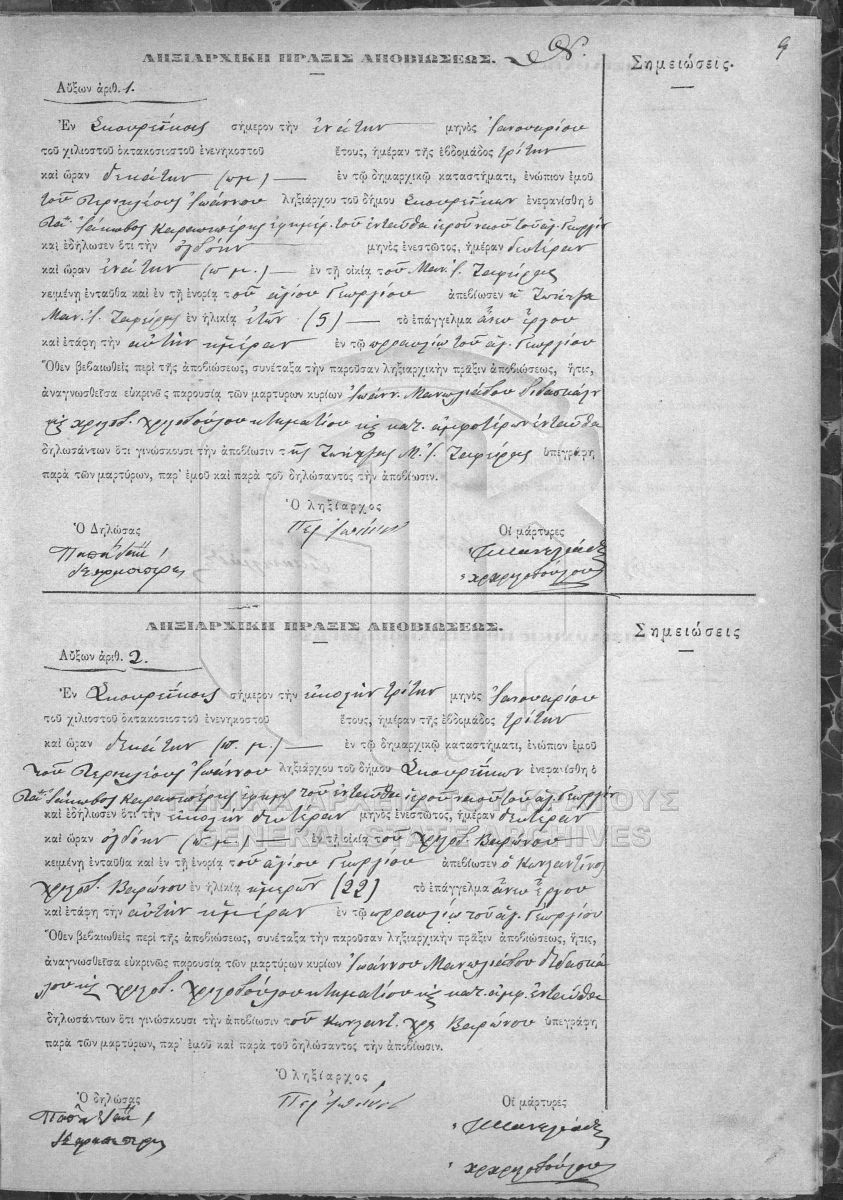 9
ΛΗΞΙΑΡΧΙΚΗ ΠΡΑΞΙΣ ΑΠΟΒΙΩΣΕΩΣ.
Σημειώσεις.
Αὔξων ἀριθ. 1.
Ἐν σήμερον τὴν ἐνάτην μηνὸς Ἰανουαρίου
τοῦ χιλιοστοῦ ὀκτακοσιοστοῦ ἐνενηκοστοῦ ἔτους, ἡμέραν τῆς ἑβδομάδος τρίτην
καὶ ὥραν δεκάτην (πμ) — ἐν τῷ δημαρχικῷ καταστήματι, ἐνώπιον ἐμοῦ
τοῦ Περικλέους Ἰωάννου ληξιάρχου τοῦ δήμου ἐνεφανίσθη ὁ
Ἰάκωβος τοῦ ἐνταῦθα ἱεροῦ ναοῦ τοῦ ἁγ. Γεωργίου
καὶ ἐδήλωσεν ὅτι τὴν ὀγδόην μηνὸς ἐνεστῶτος, ἡμέραν δευτέραν
καὶ ὥραν ἐνάτην (π μ.) — ἐν τῇ οἰκίᾳ τοῦ Μαν. Ζαφείρη
κειμένῃ ἐνταῦθα καὶ ἐν τῇ ἐνορίᾳ τοῦ ἁγίου Γεωργίου ἀπεβίωσεν ἡ
Μαν. Ζαφείρη ἐν ἡλικίᾳ ἐτῶν (5) — τὸ ἐπάγγελμα ἄνευ ἔργου
καὶ ἐτάφη τὴν αὐτὴν ἡμέραν ἐν τῷ προαυλίῳ τοῦ ἁγ. Γεωργίου
Ὅθεν βεβαιωθεὶς περὶ τῆς ἀποβιώσεως, συνέταξα τὴν παροῦσαν ληξιαρχικὴν πρᾶξιν ἀποβιώσεως, ἥτις,
ἀναγνωσθεῖσα εὐκρινῶς παρουσίᾳ τῶν μαρτύρων κυρίων Ἰωάνν. Μανωλιάδου διδασκάλου
κτηματίου ἀμφοτέρων ἐνταῦθα
δηλωσάντων ὅτι γινώσκουσι τὴν ἀποβίωσιν τῆς Μ. Ζαφείρη ὑπεγράφη
παρὰ τῶν μαρτύρων, παρ' ἐμοῦ καὶ παρὰ τοῦ δηλώσαντος τὴν ἀποβίωσιν.
Ὁ ληξίαρχος
Ὁ Δηλώσας
Οἱ μάρτυρες
ΛΗΞΙΑΡΧΙΚΗ ΠΡΑΞΙΣ ΑΠΟΒΙΩΣΕΩΣ.
Σημειώσεις
Αὔξων ἀριθ. 2.
Ἐν σήμερον τὴν εἰκοστὴν τρίτην μηνὸς Ἰανουαρίου
τοῦ χιλιοστοῦ ὀκτακοσιοστοῦ ἐνενηκοστοῦ ἔτους, ἡμέραν τῆς ἑβδομάδος τρίτην
καὶ ὥραν δεκάτην (π. μ.) — ἐν τῷ δημαρχικῷ καταστήματι, ἐνώπιον ἐμοῦ
τοῦ Περικλέους Ἰωάννου ληξιάρχου τοῦ δήμου ἐνεφανίσθη ὁ
Ἰάκωβος τοῦ ἐνταῦθα ἱεροῦ ναοῦ τοῦ ἁγ. Γεωργίου
καὶ ἐδήλωσεν ὅτι τὴν εἰκοστὴν δευτέραν μηνὸς ἐνεστῶτος, ἡμέραν δευτέραν
καὶ ὥραν ὀγδόην (π. μ.) — ἐν τῇ οἰκίᾳ τοῦ Χριστοδ. Βαρώνου
κειμένῃ ἐνταῦθα καὶ ἐν τῇ ἐνορίᾳ τοῦ ἁγίου Γεωργίου ἀπεβίωσεν ὁ Κωνσταντῖνος
Χριστοδ. Βαρώνου ἐν ἡλικίᾳ ἡμερῶν (22) τὸ ἐπάγγελμα ἄνευ ἔργου
καὶ ἐτάφη τὴν αὐτὴν ἡμέραν ἐν τῷ προαυλίῳ τοῦ ἁγ. Γεωργίου
Ὅθεν βεβαιωθεὶς περὶ τῆς ἀποβιώσεως, συνέταξα τὴν παροῦσαν ληξιαρχικὴν πρᾶξιν ἀποβιώσεως, ἥτις,
ἀναγνωσθεῖσα εὐκρινῶς παρουσίᾳ τῶν μαρτύρων κυρίων Ἰωάννου Μανωλιάδου διδασκά
λου κτηματίου ἐνταῦθα
δηλωσάντων ὅτι γινώσκουσι τὴν ἀποβίωσιν τοῦ Κωνσταντ. Βαρώνου ὑπεγράφη
παρὰ τῶν μαρτύρων, παρ' ἐμοῦ καὶ παρὰ τοῦ δηλώσαντος τὴν ἀποβίωσιν.
Ὁ ληξίαρχος
Ὁ δηλώσας
Οἱ μάρτυρες
ΓΕΝΙΚΑ ΑΡΧΕΙΑ ΤΟΥ ΚΡΑΤΟΥΣ
GENERAL STATE ARCHIVES